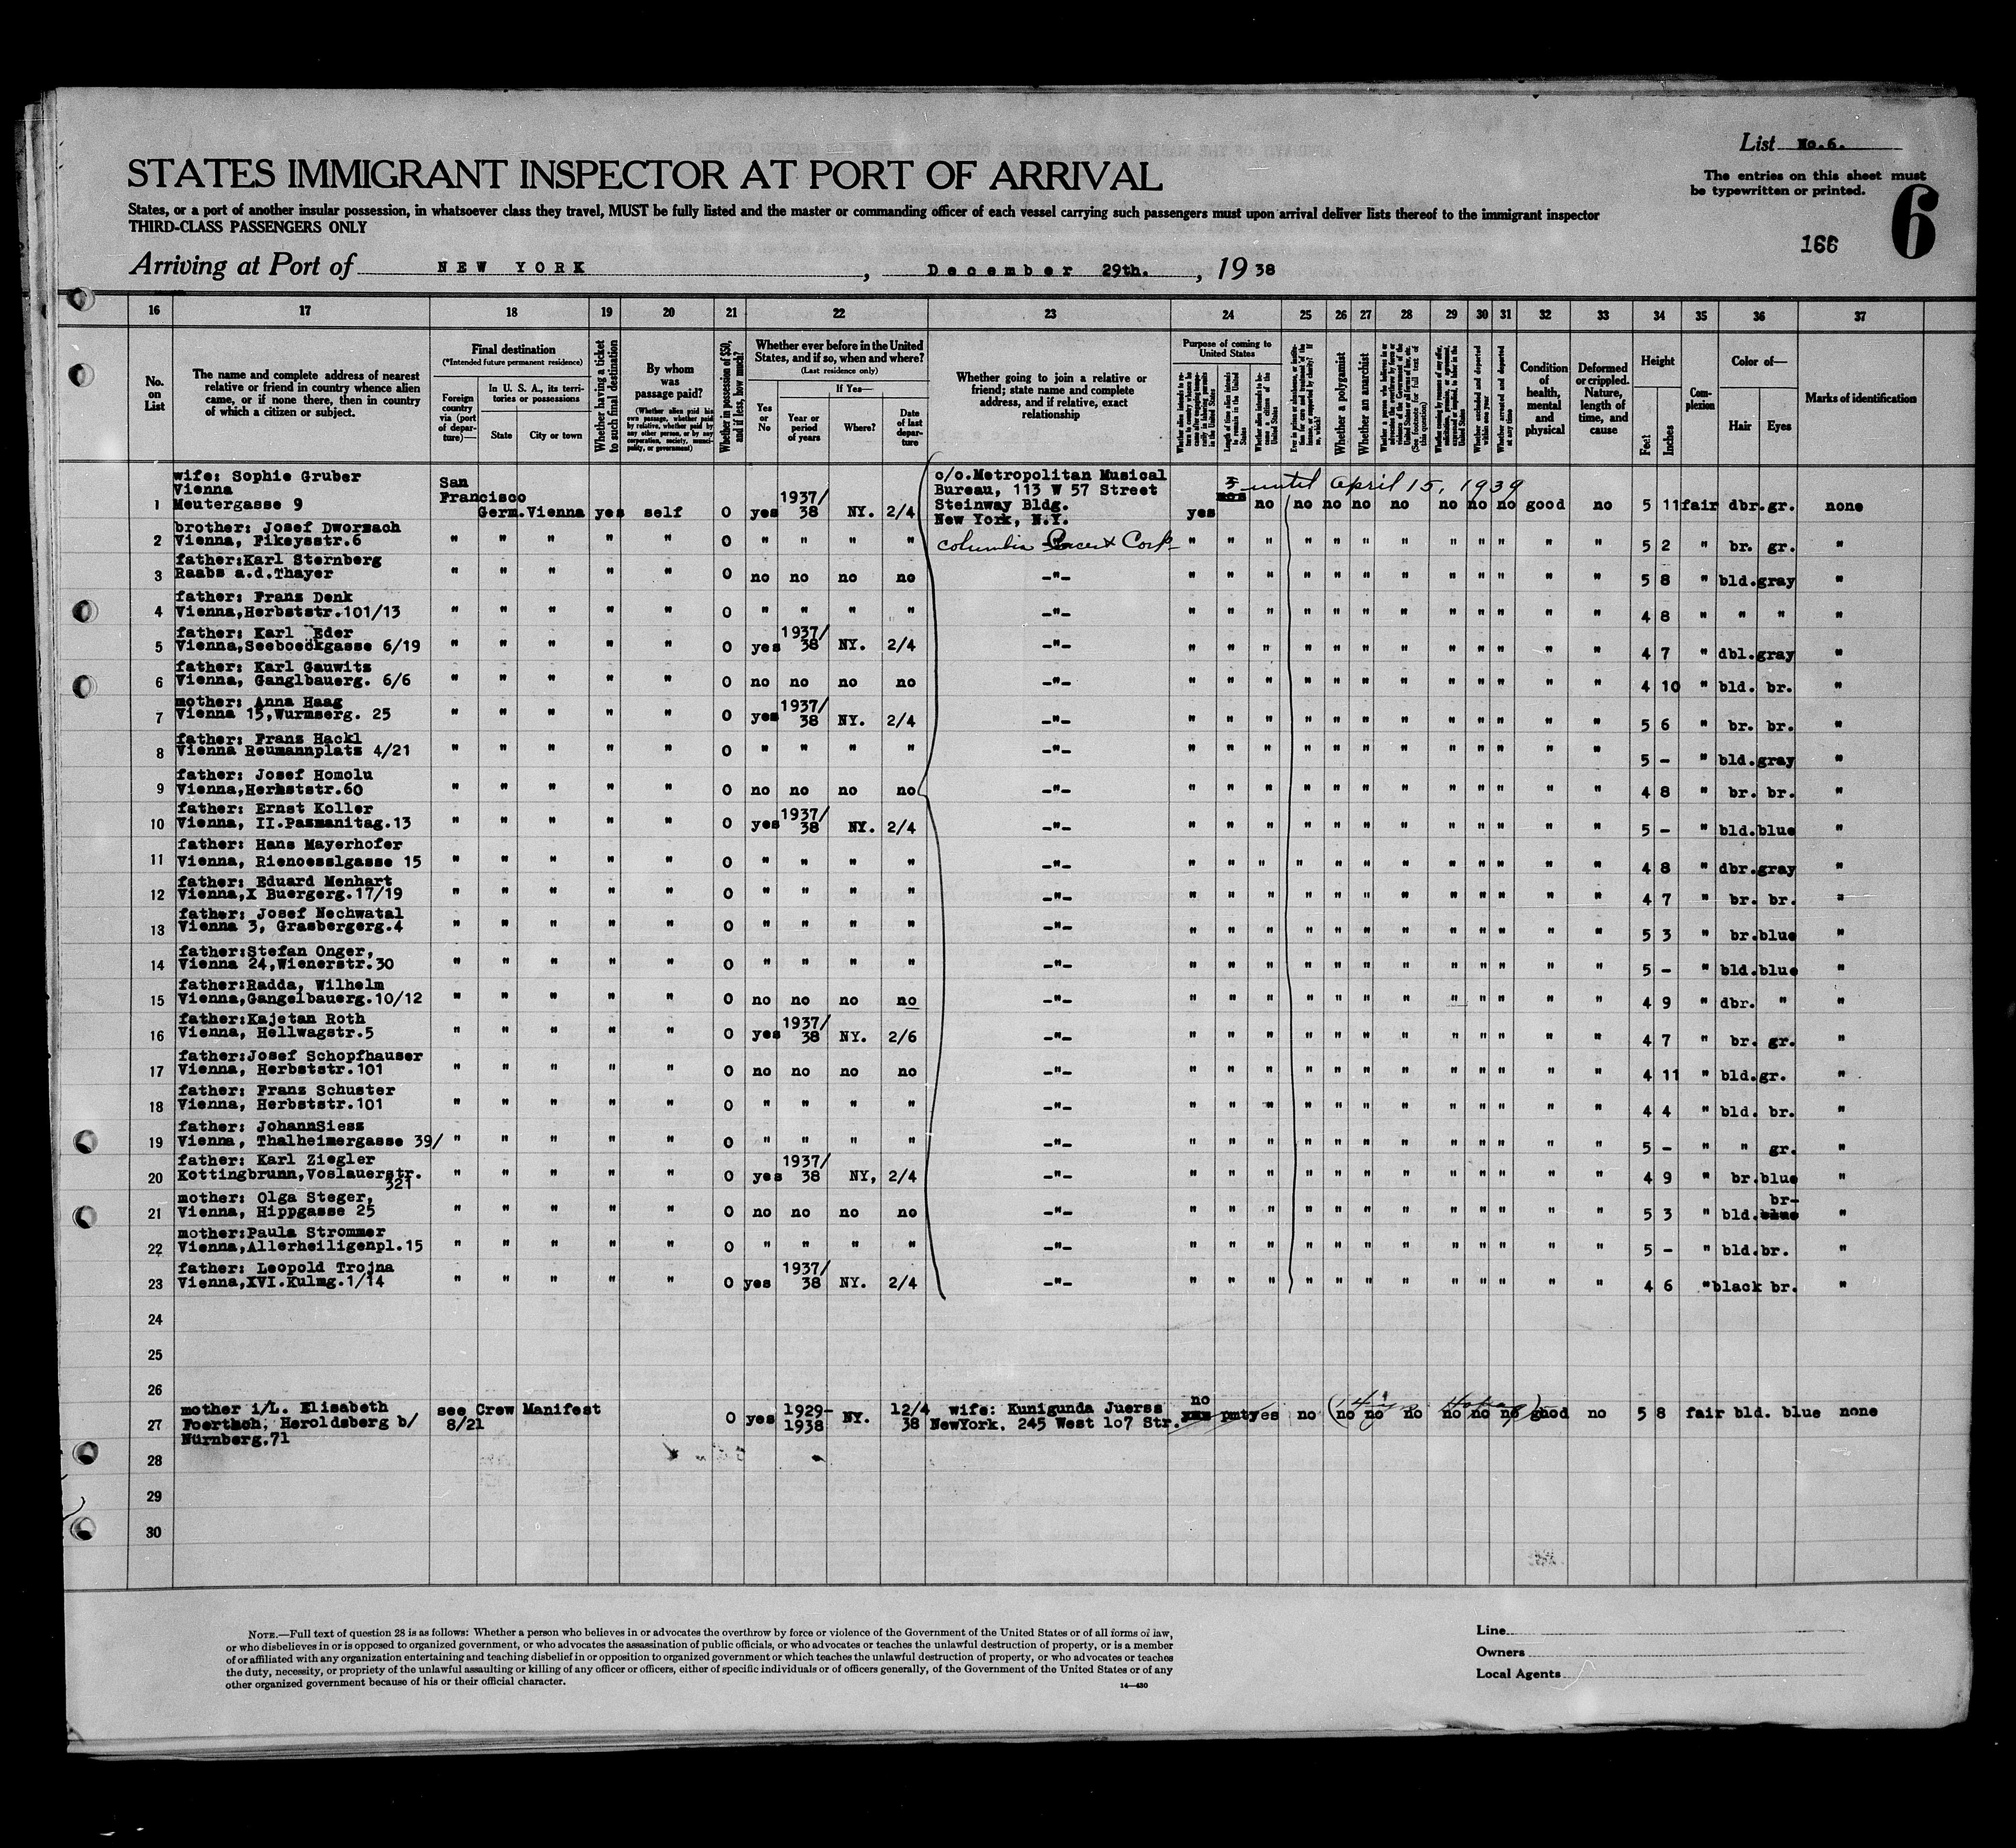 List No.6.
STATES IMMIGRANT INSPECTOR AT PORT OF ARRIVAL
The entries on this sheet must
be typewritten or printed.
6
States, or a port of another insular possession, in whatsoever class they travel, MUST be fully listed and the master or commanding officer of each vessel carrying such passengers must upon arrival deliver lists thereof to the immigrant inspector
THIRD-CLASS PASSENGERS ONLY
166
Arriving at Port of NEW YORK, December 29th., 1938
16 17 18 19 20 21 22 23 24 25 26 27 28 29 30 31 32 33 34 35 36 37
No. on List
The name and complete address of nearest
relative or friend in country whence alien
came, or if none there, then in country
of which a citizen or subject.
Final destination
(*Intended future permanent residence)
Foreign country via (port of departure)—
In U. S. A., its territories or possessions
State
City or town
Whether having a ticket to such final destination
By whom was passage paid?
(Whether alien paid his own passage, whether paid by relative, whether paid by any other person, or by any corporation, society, municipality, or government)
Whether in possession of $50, and if less, how much?
Whether ever before in the United
States, and if so, when and where?
(Last residence only)
Yes or No
If Yes—
Year or period of years
Where?
Date of last departure
Whether going to join a relative or
friend; state name and complete
address, and if relative, exact
relationship
Purpose of coming to
United States
Whether a polygamist
Whether an anarchist
Condition of health, mental and physical
Deformed or crippled. Nature, length of time, and cause
Height
Feet
Inches
Complexion
Color of—
Hair
Eyes
Marks of identification
wife: Sophie Gruber
Vienna
1 Meutergasse 9 San Francisco Germ. Vienna yes self 0 yes 1937/38 NY. 2/4
c/o.Metropolitan Musical
Bureau, 113 W 57 Street
Steinway Bldg.
New York, N.Y.
yes 3 mos until April 15, 1939
no no no no no no no no good no 5 11 fair dbr. gr. none
brother: Josef Dworzach
2 Vienna, Fikeysstr.6 " " " " " 0 " " " " Columbia Concert Corp " " " " " " " " " " " " " 5 2 " br. gr. "
father:Karl Sternberg
3 Raabs a.d.Thayer " " " " " 0 no no no no -"- " " " " " " " " " " " " 5 8 " bld. gray "
father: Franz Denk
4 Vienna,Herbststr.101/13 " " " " " 0 " " " " -"- " " " " " " " " " " " " 4 8 " " " "
father: Karl Eder
5 Vienna,Seeboeckgasse 6/19 " " " " " 0 yes 1937/38 NY. 2/4 -"- " " " " " " " " " " " " 4 7 " dbl. gray "
father: Karl Gauwitz
6 Vienna, Ganglbauerg. 6/6 " " " " " 0 no no no no -"- " " " " " " " " " " " " 4 10 " bld. br. "
mother: Anna Haag
7 Vienna 15,Wurmserg. 25 " " " " " 0 yes 1937/38 NY. 2/4 -"- " " " " " " " " " " " " 5 6 " br. br. "
father: Franz Hackl
8 Vienna Reumannplatz 4/21 " " " " " 0 " " " " -"- " " " " " " " " " " " " 5 - " bld. gray "
father: Josef Homolu
9 Vienna,Herbststr.60 " " " " " 0 no no no no -"- " " " " " " " " " " " " 4 8 " br. br. "
father: Ernst Koller
10 Vienna, II.Pazmanitag.13 " " " " " 0 yes 1937/38 NY. 2/4 -"- " " " " " " " " " " " " 5 - " bld. blue "
father: Hans Mayerhofer
11 Vienna, Rienoesslgasse 15 " " " " " 0 " " " " -"- " " " " " " " " " " " " 4 8 " dbr. gray "
father: Eduard Menhart
12 Vienna,X Buergerg.17/19 " " " " " 0 " " " " -"- " " " " " " " " " " " " 4 7 " br. br. "
father: Josef Nechwatal
13 Vienna 3, Grasbergerg.4 " " " " " 0 " " " " -"- " " " " " " " " " " " " 5 3 " br. blue "
father:Stefan Onger,
14 Vienna 24,Wienerstr.30 " " " " " 0 " " " " -"- " " " " " " " " " " " " 5 - " bld. blue "
father:Radda, Wilhelm
15 Vienna,Gangelbauerg.10/12 " " " " " 0 no no no no -"- " " " " " " " " " " " " 4 9 " dbr. " "
father:Kajetan Roth
16 Vienna, Hellwagstr.5 " " " " " 0 yes 1937/38 NY. 2/6 -"- " " " " " " " " " " " " 4 7 " br. gr. "
father:Josef Schopfhauser
17 Vienna, Herbststr.101 " " " " " 0 no no no no -"- " " " " " " " " " " " " 4 11 " bld. gr. "
father: Franz Schuster
18 Vienna, Herbststr.101 " " " " " 0 " " " " -"- " " " " " " " " " " " " 4 4 " bld. br. "
father: JohannSiess
19 Vienna, Thalheimergasse 39/ " " " " " 0 " " " " -"- " " " " " " " " " " " " 5 - " " gr. "
father: Karl Ziegler
20 Kottingbrunn,Voslauerstr. 321 " " " " " 0 yes 1937/38 NY, 2/4 -"- " " " " " " " " " " " " 4 9 " br. blue "
mother: Olga Steger,
21 Vienna, Hippgasse 25 " " " " " 0 no no no no -"- " " " " " " " " " " " " 5 3 " bld. blue br- "
mother:Paula Strommer
22 Vienna,Allerheiligenpl.15 " " " " " 0 " " " " -"- " " " " " " " " " " " " 5 - " bld. br. "
father: Leopold Trojna
23 Vienna,XVI.Kulmg.1/14 " " " " " 0 yes 1937/38 NY. 2/4 -"- " " " " " " " " " " " " 4 6 " black br. "
24
25
26
mother i/L. Elisabeth
27 Foertsch, Heroldsberg b/
Nürnberg.71
see Crew Manifest
8/21
0 yes 1929-1938 NY. 12/4 38
wife: Kunigunda Juerss
NewYork. 245 West 107 Str.
no pmt yes no no no no no no no good no 5 8 fair bld. blue none
28
29
30
NOTE.—Full text of question 28 is as follows: Whether a person who believes in or advocates the overthrow by force or violence of the Government of the United States or of all forms of law,
or who disbelieves in or is opposed to organized government, or who advocates the assassination of public officials, or who advocates or teaches the unlawful destruction of property, or is a member
of or affiliated with any organization entertaining and teaching disbelief in or opposition to organized government or which teaches the unlawful destruction of property, or who advocates or teaches
the duty, necessity, or propriety of the unlawful assaulting or killing of any officer or officers, either of specific individuals or of officers generally, of the Government of the United States or of any
other organized government because of his or their official character.
14—430
Line
Owners
Local Agents